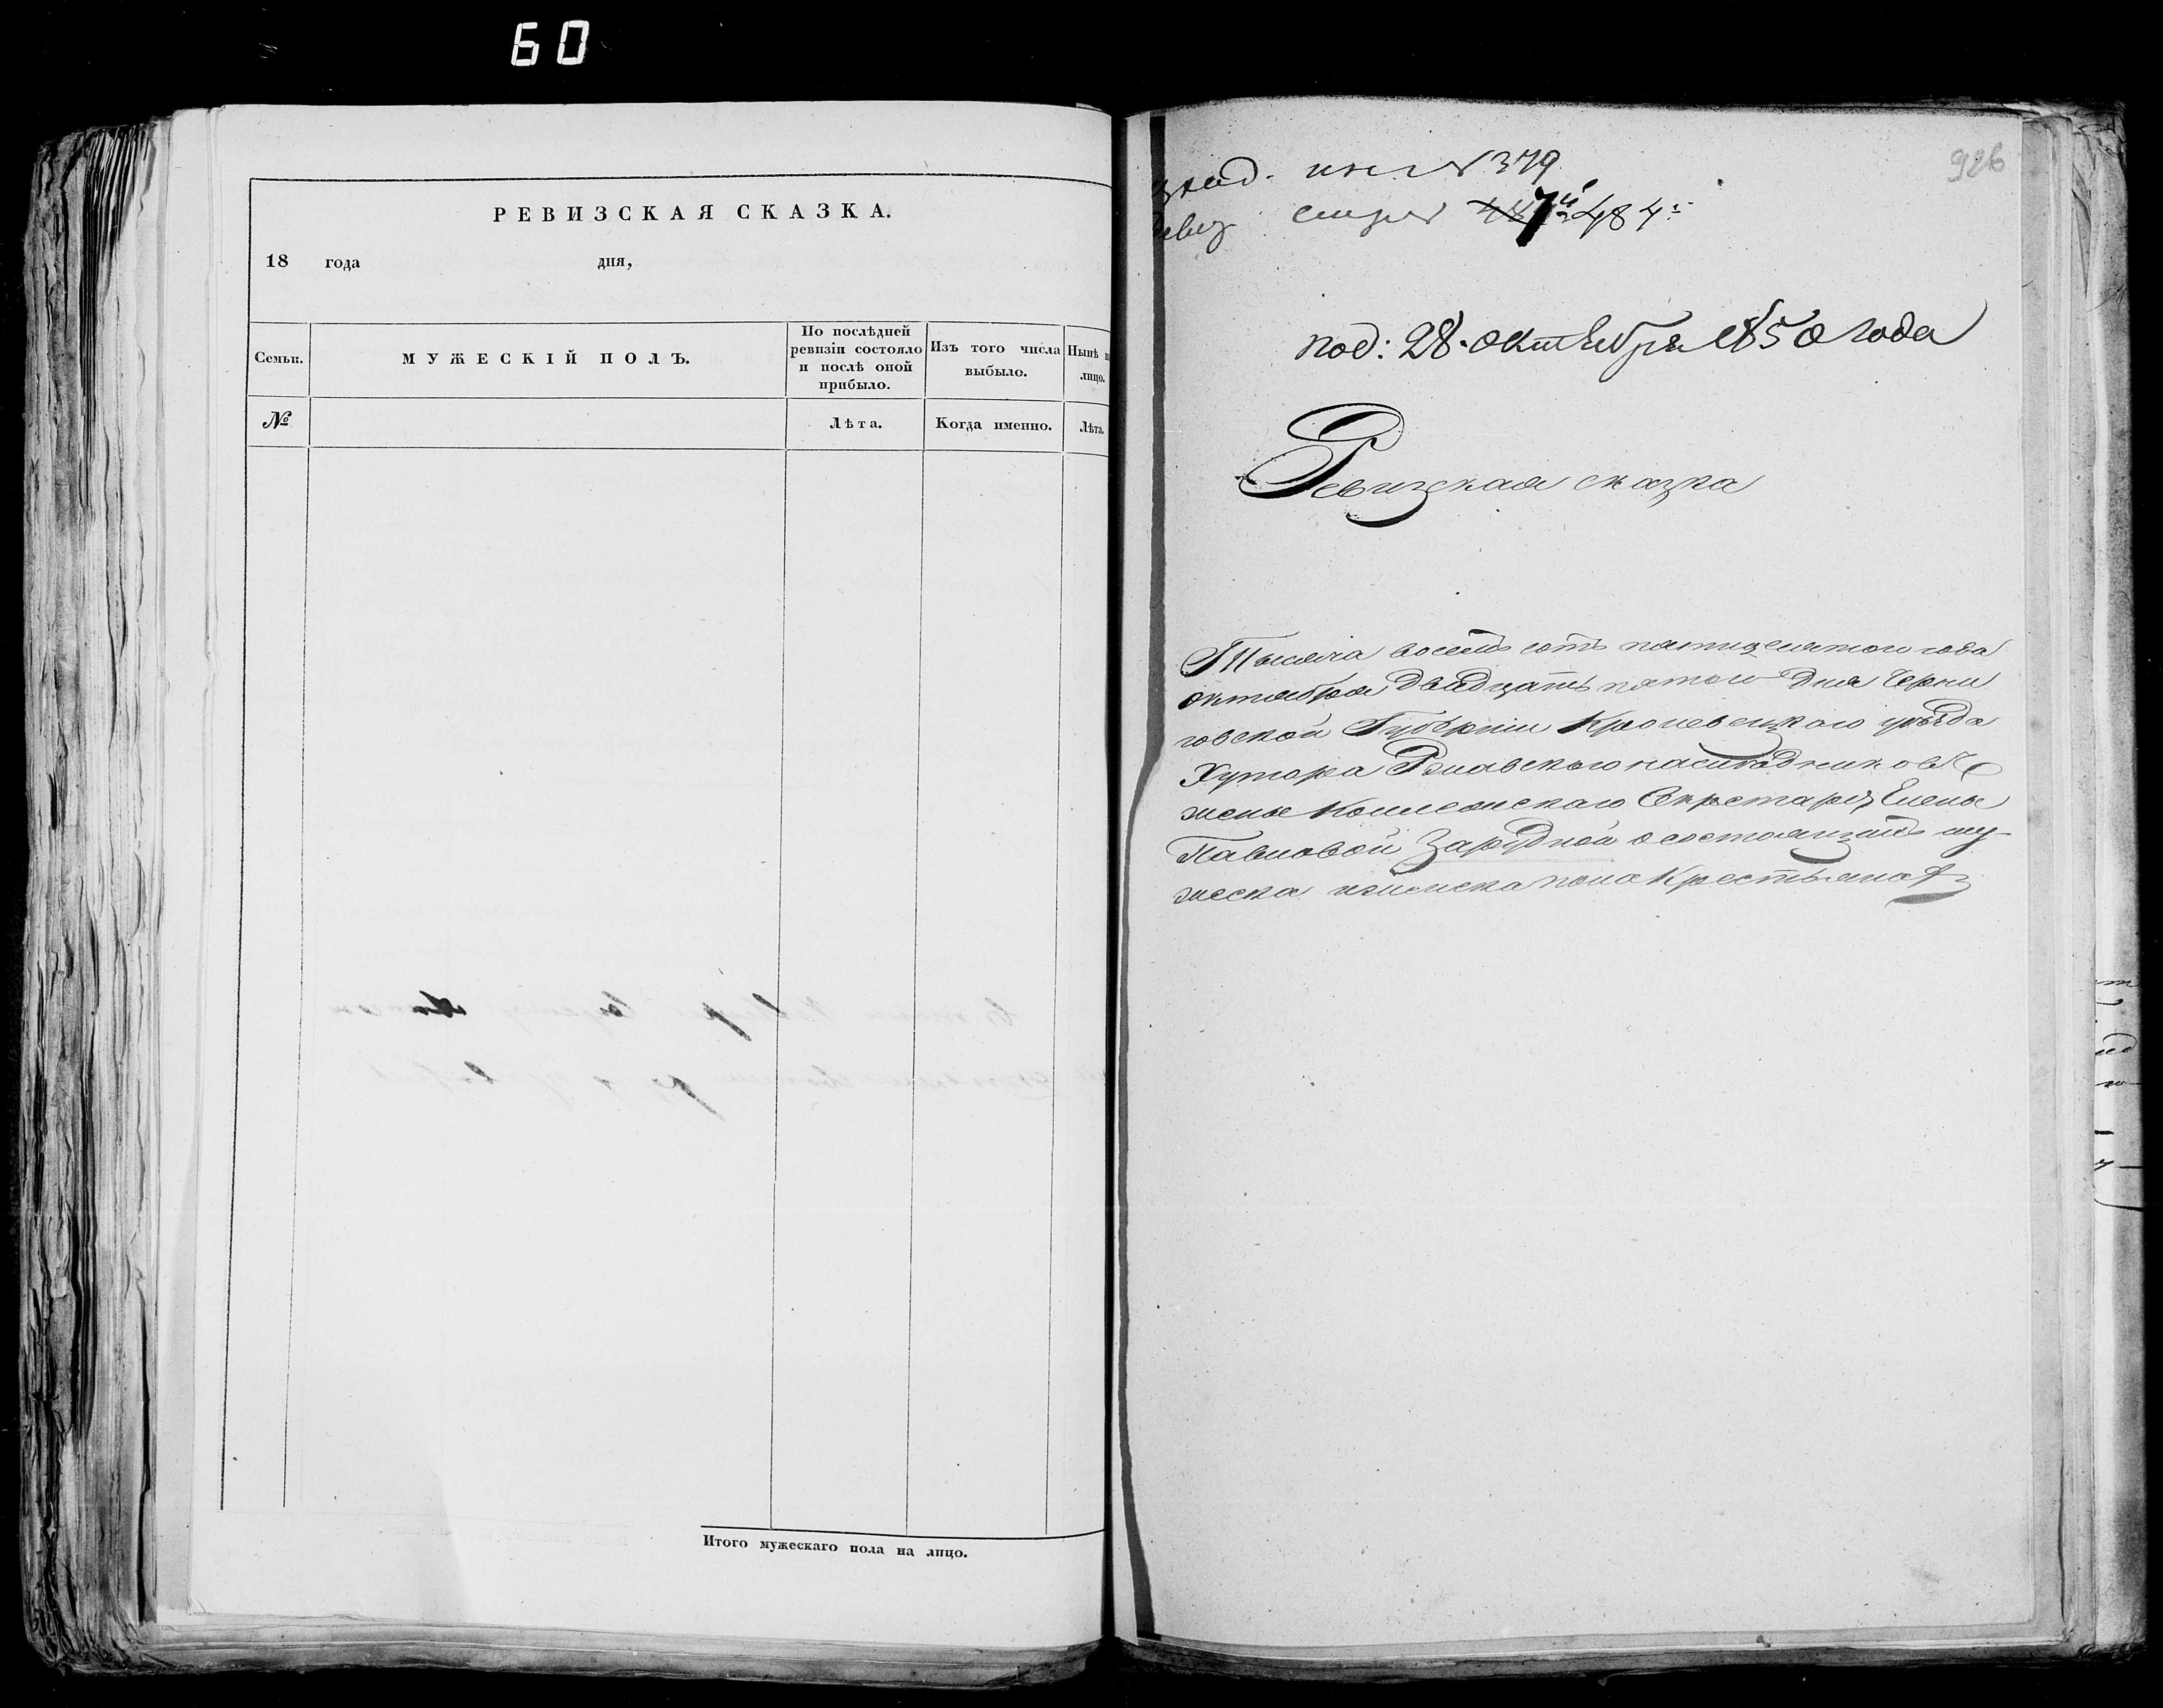 60
РЕВИЗСКАЯ СКАЗКА.
18 года дня,
Семьи.
МУЖЕСКІЙ ПОЛЪ.
По послѣдней
ревизіи состояло
и послѣ оной
прибыло.
Изъ того числа
выбыло.
Нынѣ
лицо.
№
Лѣта.
Когда именно.
Лѣта.
Итого мужескаго пола на лицо.
926
379
7й 484
под: 28. октября 1850 года
Ревизская сказка
Тысяча восемь сотъ пятидесятого года
октября двадцать пятого дня Черни
говской Губерніи Кролевецкаго уѣзда
Хутора
жены Коллежскаго Секретаря Елены
Павловой Зарудной о состоящихъ му-
жеска и женска пола Крестьянахъ